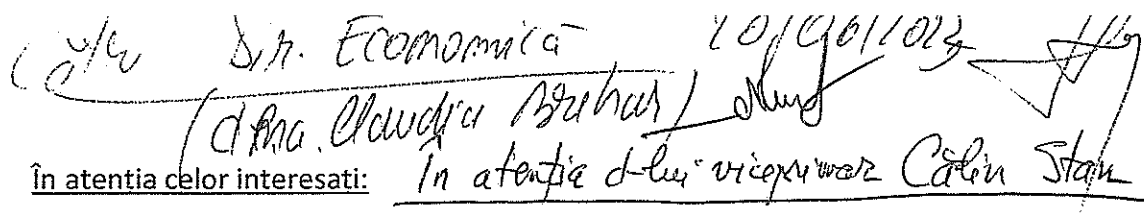 Dir. Economică
(dna. Claudia
În atentia celor interesati: În atenția d-lui viceprimar Călin Stan